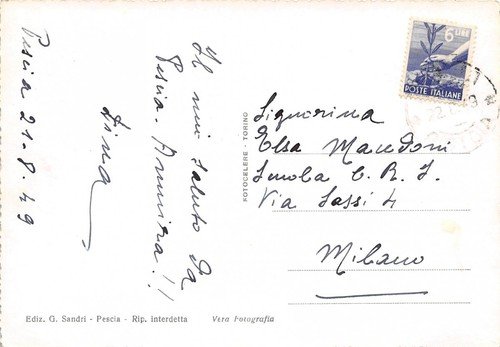 Pescia 21-8-49
Il mio saluto da
Pescia.
Dina
6 LIRE
POSTE ITALIANE
Signorina
Elsa Macedoni
C. R. I.
Via Sassi 4
Milano
FOTOCELERE - TORINO
Ediz. G. Sandri - Pescia - Rip. interdetta Vera Fotografia